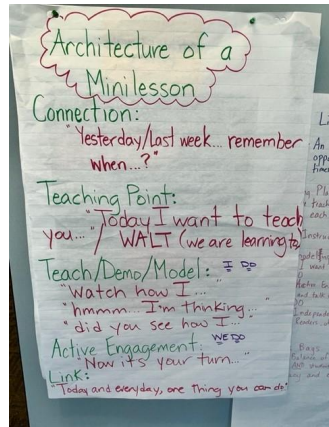 Architecture of a
Minilesson
Connection:
"Yesterday/Last week... remember
when...?"
Teaching Point:
"Today I want to teach
you..." / WALT (we are learning to)
Teach/Demo/Model: I DO
"Watch how I...
"hmmm... I'm thinking...
"did you see how I...
Active Engagement: WE DO
"Now it's your turn..."
Link:
"Today and everyday, one thing you can do"